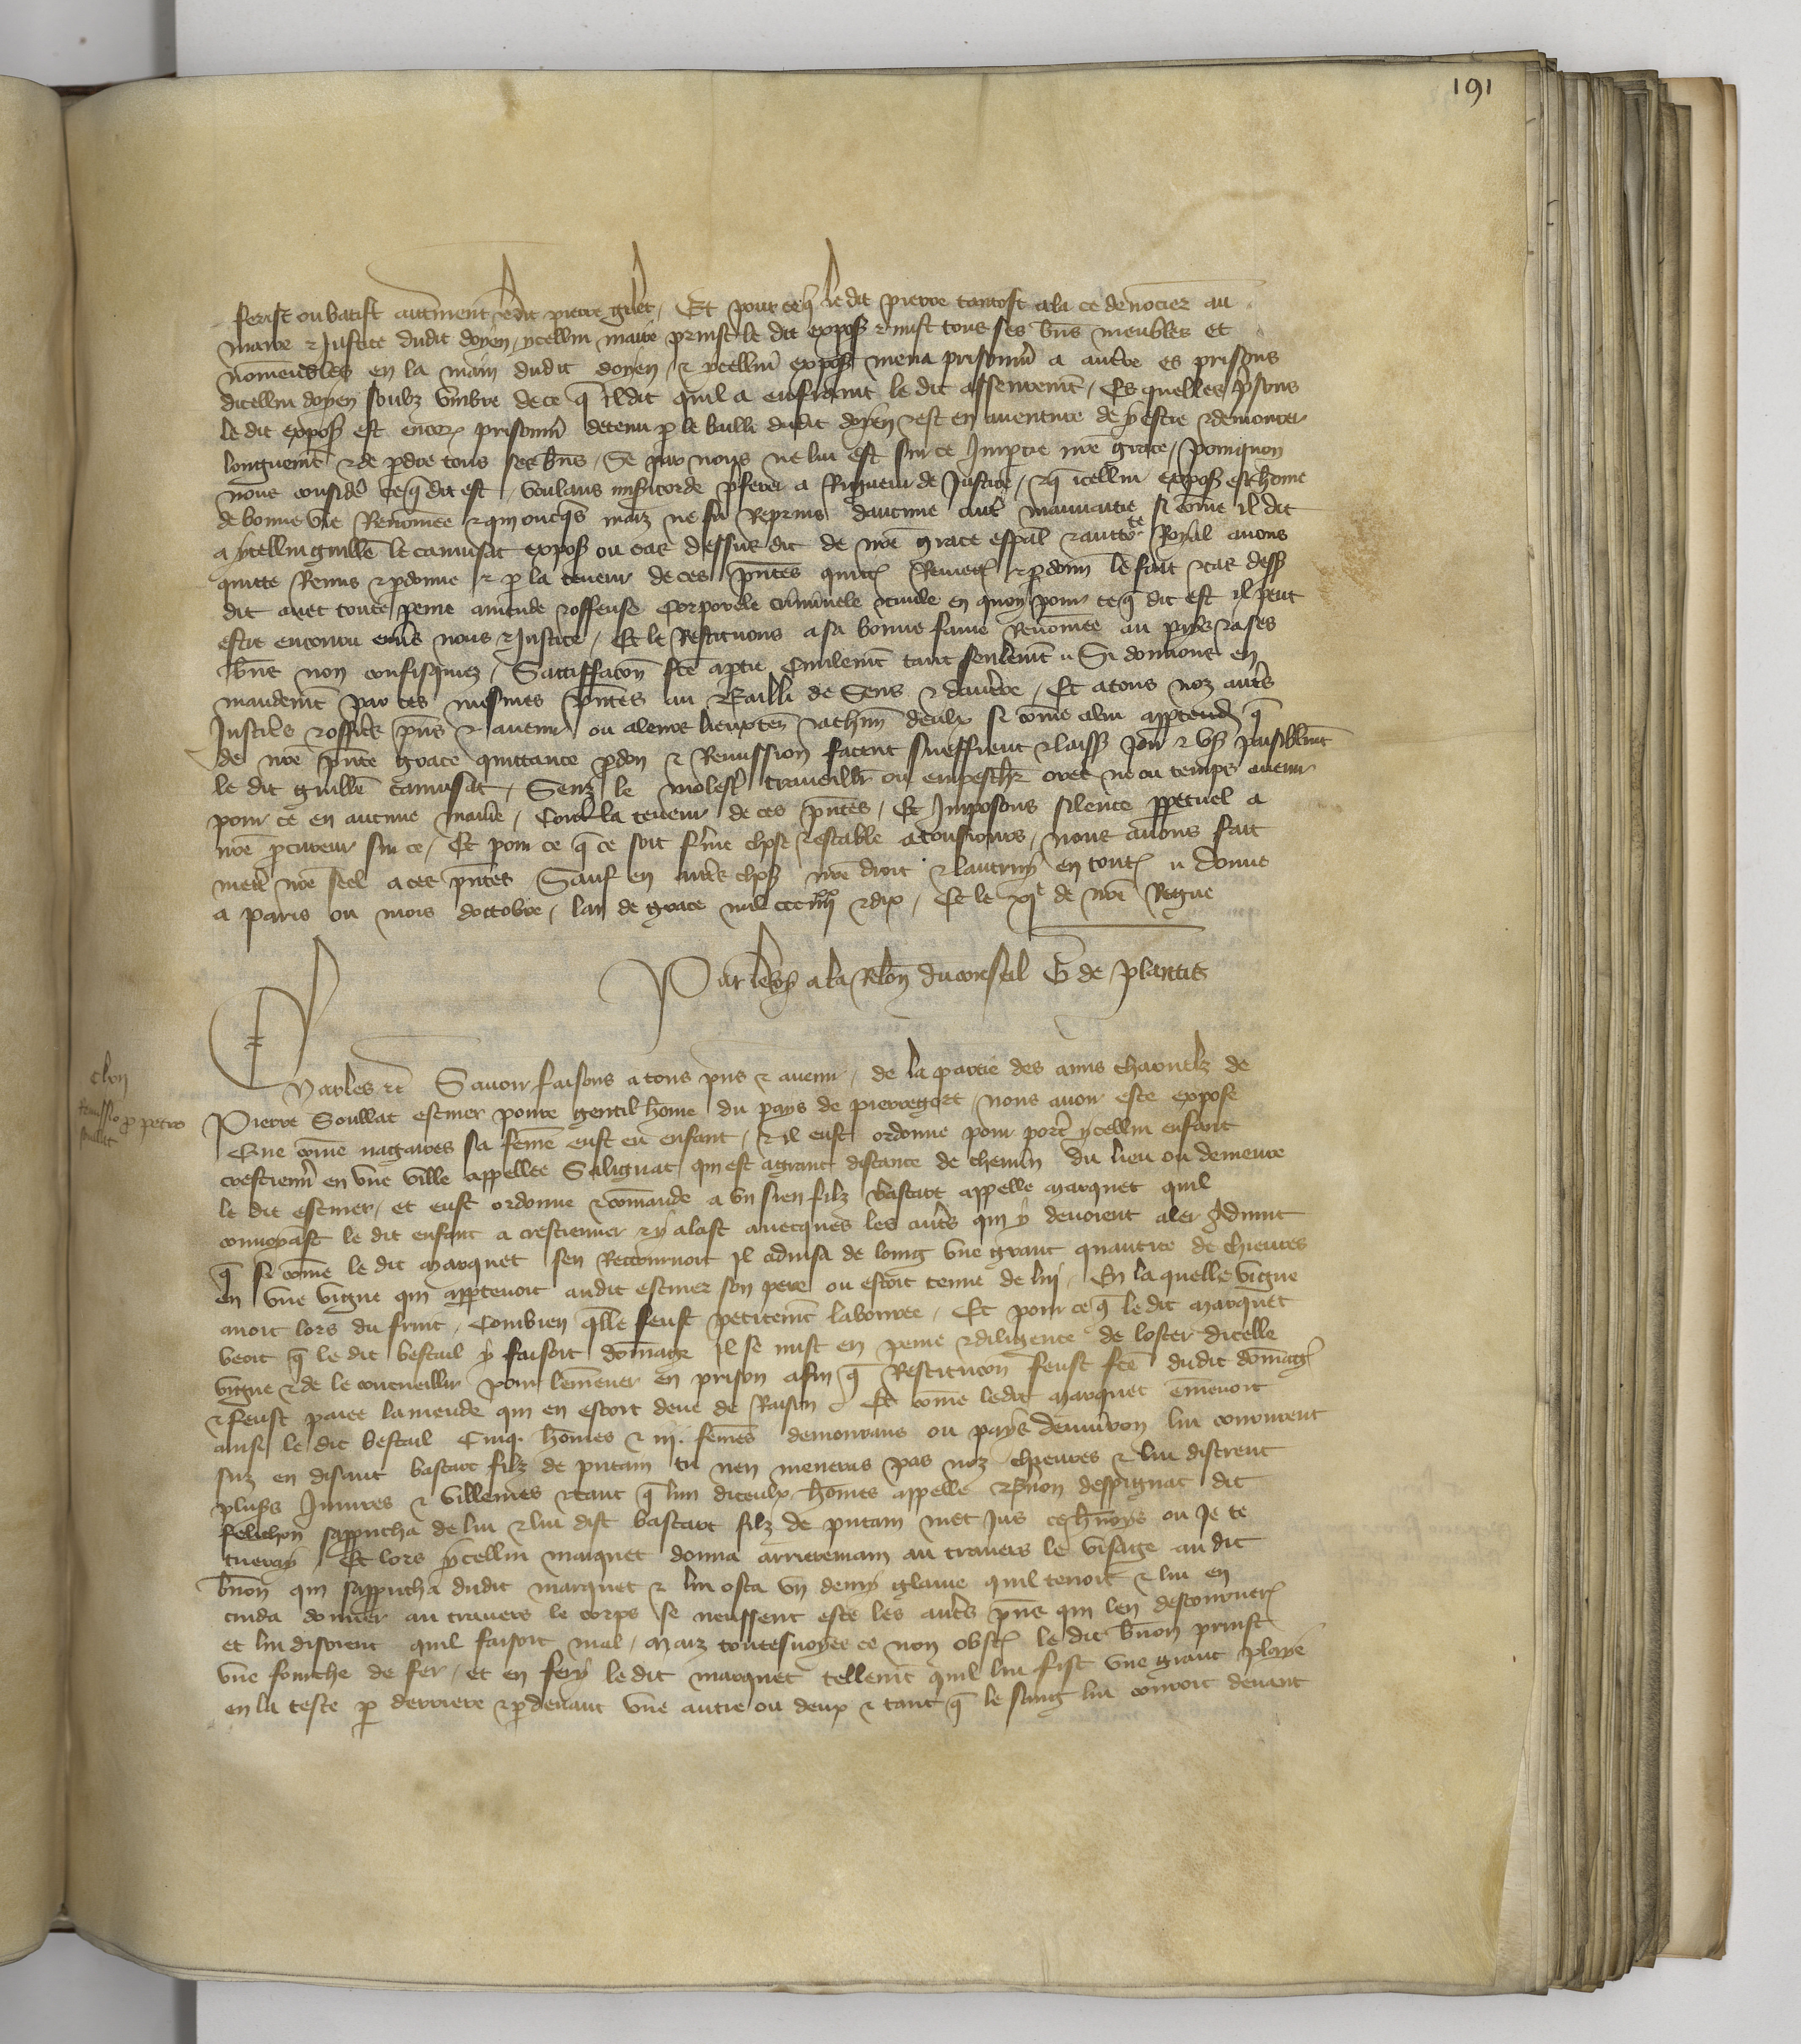 191
ferist ou batist autrement ledit pierre gilet, Et pour ce q̄ le dit pierre tantost ala ce denocier au
maire & Justice dudit doyen, ycellui maire prinst le dit expoš & mist tous ses bn̄s meubles et
nomeubles en la main dudit doyen, & ycellui expoš mena prisonn̄ a aucerre es prisons
dicellui doyen soubz umbre de ce q̄ il dit quil a enfraint le dit asseuremt̄, Es quelles p̄sons
le dit expoš est encor̄ prisonn̄ detenu p le bailli dudit doyen & est en aventure de y estre & demourer
longuemt̄ & de pdre tous ses bn̄s, Se par nous ne lui est sur ce Imptie nrē grace, pourquoy
nous considē ce q̄ dit est, voulans mis̄icorde p̄ferer a Rigueur de Justice, & q̄ icellui expoš est hōme
de bonne vie Renōmee & qui oncq̄s maiz ne fu Reprins daucune autr̄ mauvaitie si cōme il dit
a ycellui guillē le camusat expoš ou cas dessus dit de nrē grace esp̄al & auctorte Royal avons
quitte Remis & pdonne & p la teneur de ces pn̄tes quitt̄ Remet̄ & pdonn̄ le fait & cas dess̄
dit avec toute peine amende & offense Corporele crīminele & civile en quoy pour ce q̄ dit est il peut
estre encouru envs nous & Justice, Et le Restituons a sa bonne fame Renōmee au pays & a ses
bn̄s non confisquez, Satiffacōn fcē a ptie Civilemt̄ tant seulemt̄ Si donnons en
mandemt̄ par ces mesmes pn̄tes au Bailli de Sens & daucerre, Et a tous noz autr̄s
Justic̄s & offic̄s pn̄s & avenir ou a leurs lieuxten̄ & a chūn deulx si cōme a lui apptend̄ q̄
de nrē pn̄te grace quittance pdon & Remission facent sueffrent & laiss̄ joir & us̄ paisiblemt̄
le dit guillē camusat, Senz le molest̄ travaillr̄ ou empeschr̄ ores ne ou temps avenir
pour ce en aucune maniē, Contr̄ la teneur de ces pn̄tes, Et Imposons silence ppetuel a
nrē pcureur sur ce, Et pour ce q̄ ce soit ferme chose & estable a tousiours, nous avons fait
mettr̄ nrē seel a ces pn̄tes Sauf en autr̄s chos̄ nrē droit & lautruy en tout̄ donne
a paris ou mois doctobre, lan de grace mil ccc iiiixx & dix, Et le xIe de nrē Regne
Par le Roy a la Relon̄ du conseil G de plantis
Charles &c Savoir faisons a tous pn̄s & avenir, de la partie des amis charnelz de
Remissio p petro
soullat
Pierre Soullat escuier povre gentil hōme du pays de pierregort, nous avoir este expose
Que cōme nagaires sa fēme eust eu enfant, & il eust ordonne pour port̄ ycellui enfant
crestienn̄ en une ville appellee Salignac qui est a grant distance de chemin du lieu ou demeure
le dit escuier, et eust ordonne & cōmande a un sien filz bastart appelle marquet quil
convoyast le dit enfant a crestienner & y alast avecques les autr̄s qui y devoient aler Advint
q̄ si cōme le dit marquet sen Retournoit il advisa de loing une grant quantite de chievres
en une vigne qui apptenoit audit escuier son pere ou estoit tenue de lui, En laquelle vigne
avoit lors du fruit, Combien qlle feust petitemt̄ labouree, Et pour ce q̄ le dit marquet
veoit q̄ le dit bestail y faisoit dōmage il se mist en peine & diligence de loster dicelle
vigne & de le concueillir pour lēmener en prison afin q̄ Restitucōn feust fcē dudit dōmage
& feust paiee lamende qui en estoit deue de Raison Et cōme ledit marquet ēmenoit
ainsi le dit bestail Cinq hōmes & iij fēmes demourans ou pays denviron lui coururent
suz en disant bastart filz de putain tu nen meneras pas noz chievres & lui distrent
plusš Iniures & villenies & tant q̄ lun diceulx hōmes appelle B̄non despignac dit
felichon sapproucha de lui & lui dist bastart filz de putain met jus ce harnoys ou Je te
tueray Et lors ycellui marquet donna arrieremain au travers le visage au dit
b̄non qui sapproucha dudit marquet & lui osta un demy glaive quil tenoit & lui en
cuida donner au travers le corps se neussent este les autr̄s pn̄s qui len destournerent̄
et lui disoient quil faisoit mal, Maiz toutesvoyes ce non obst̄ le dit b̄non prinst
une fourche de fer, et en fery le dit marquet tellemt̄ quil lui fist une grant playe
en la teste p derriere & p devant une autre ou deux & tant q̄ le sang lui couroit devant